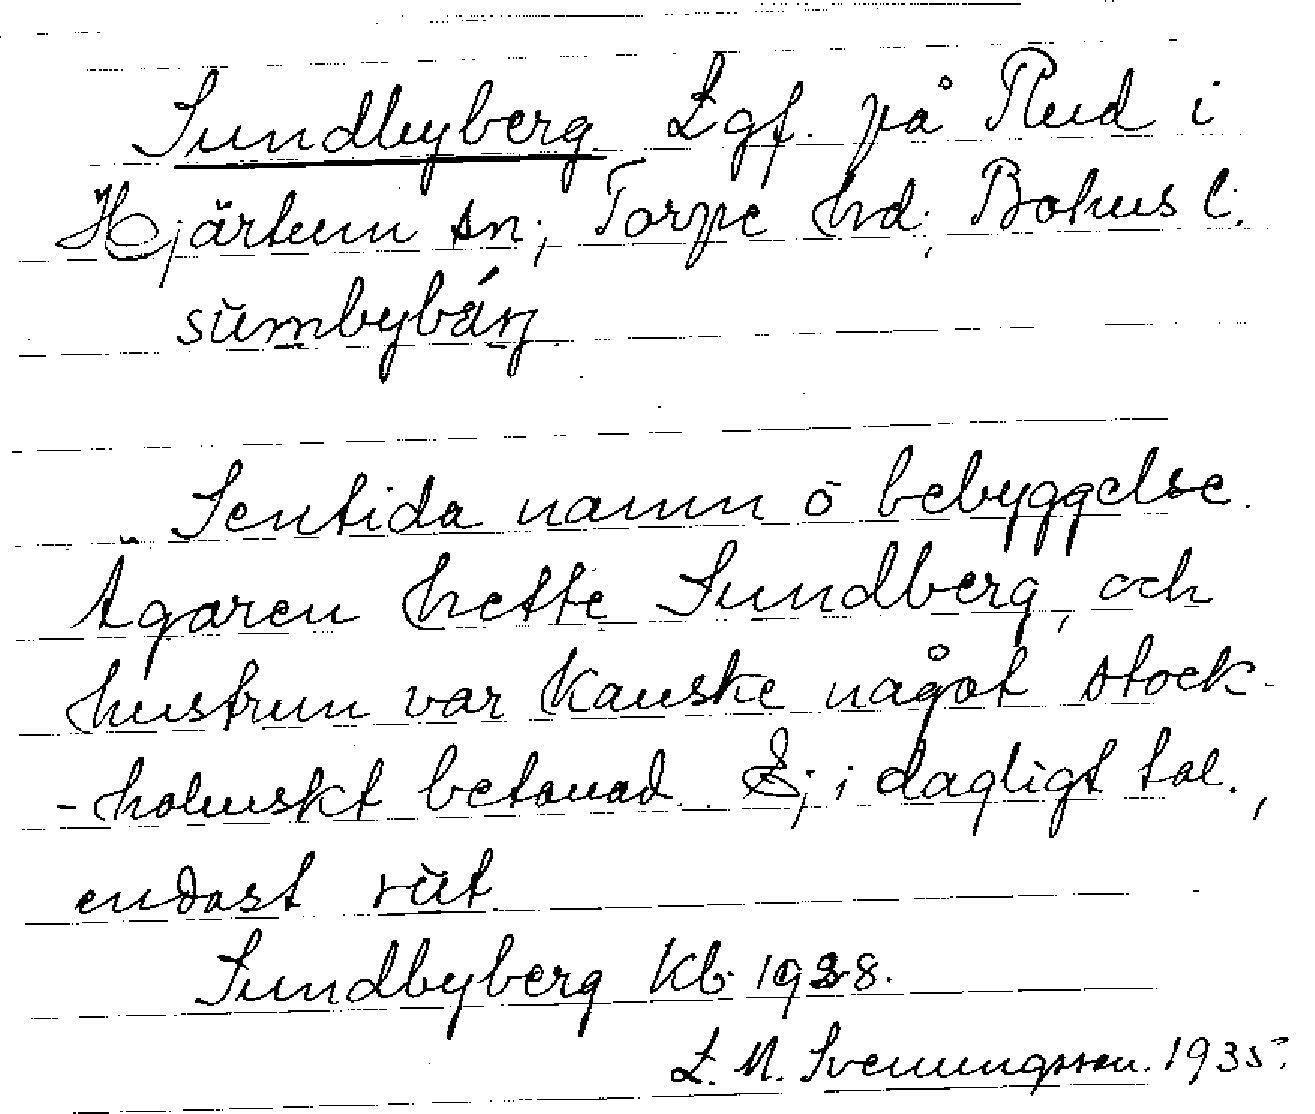 Sundbyberg Lgf. på Rud i
Hjärtum sn; Torpe hd; Bohus l.
sùmbybárj
Sentida namn o bebyggelse.
Ägaren hette Sundberg, och
hustrun var kanske något stock-
-holmskt betonad. Ej i dagligt tal.,
endast rùt
Sundbyberg Kb. 1928.
L. M. Svenungsson. 1935.